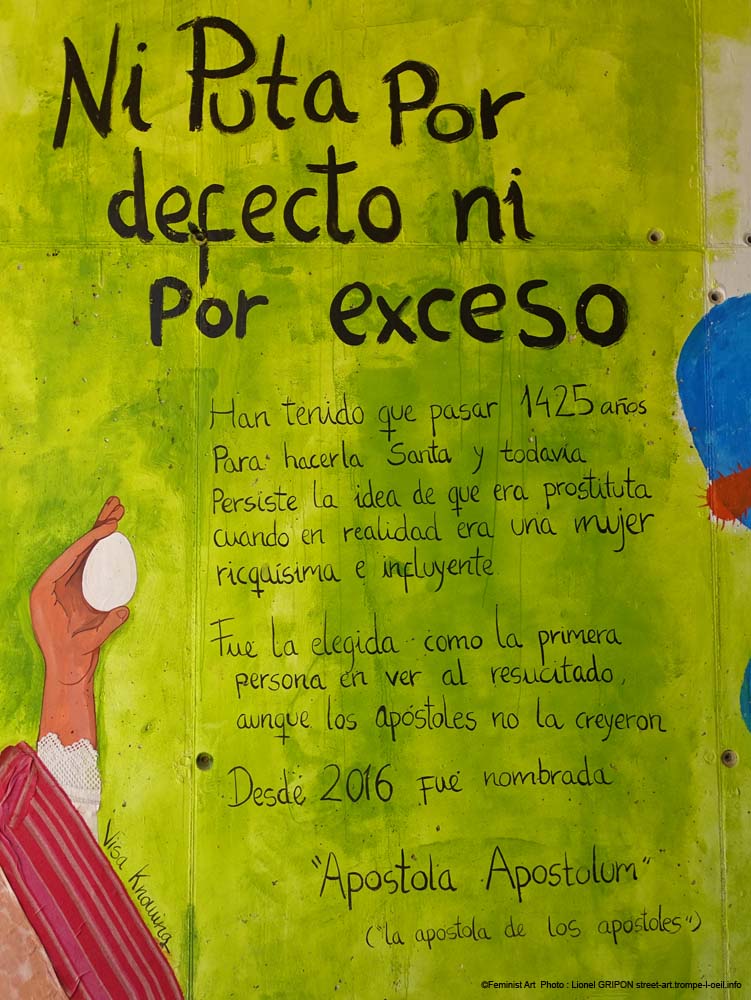 Ni Puta Por
defecto ni
por exceso
Han tenido que pasar 1425 años
Para hacerla Santa y todavía
Persiste la idea de que era prostituta
cuando en realidad era una mujer
ricquísima e influyente
Fue la elegida como la primera
persona en ver al resucitado,
aunque los apóstoles no la creyeron
Desde 2016 fue nombrada
"Apostola Apostolum"
("la apostola de los apostoles")
Visa Knouing
©Feminist Art Photo : Lionel GRIPON street-art.trompe-l-oeil.info